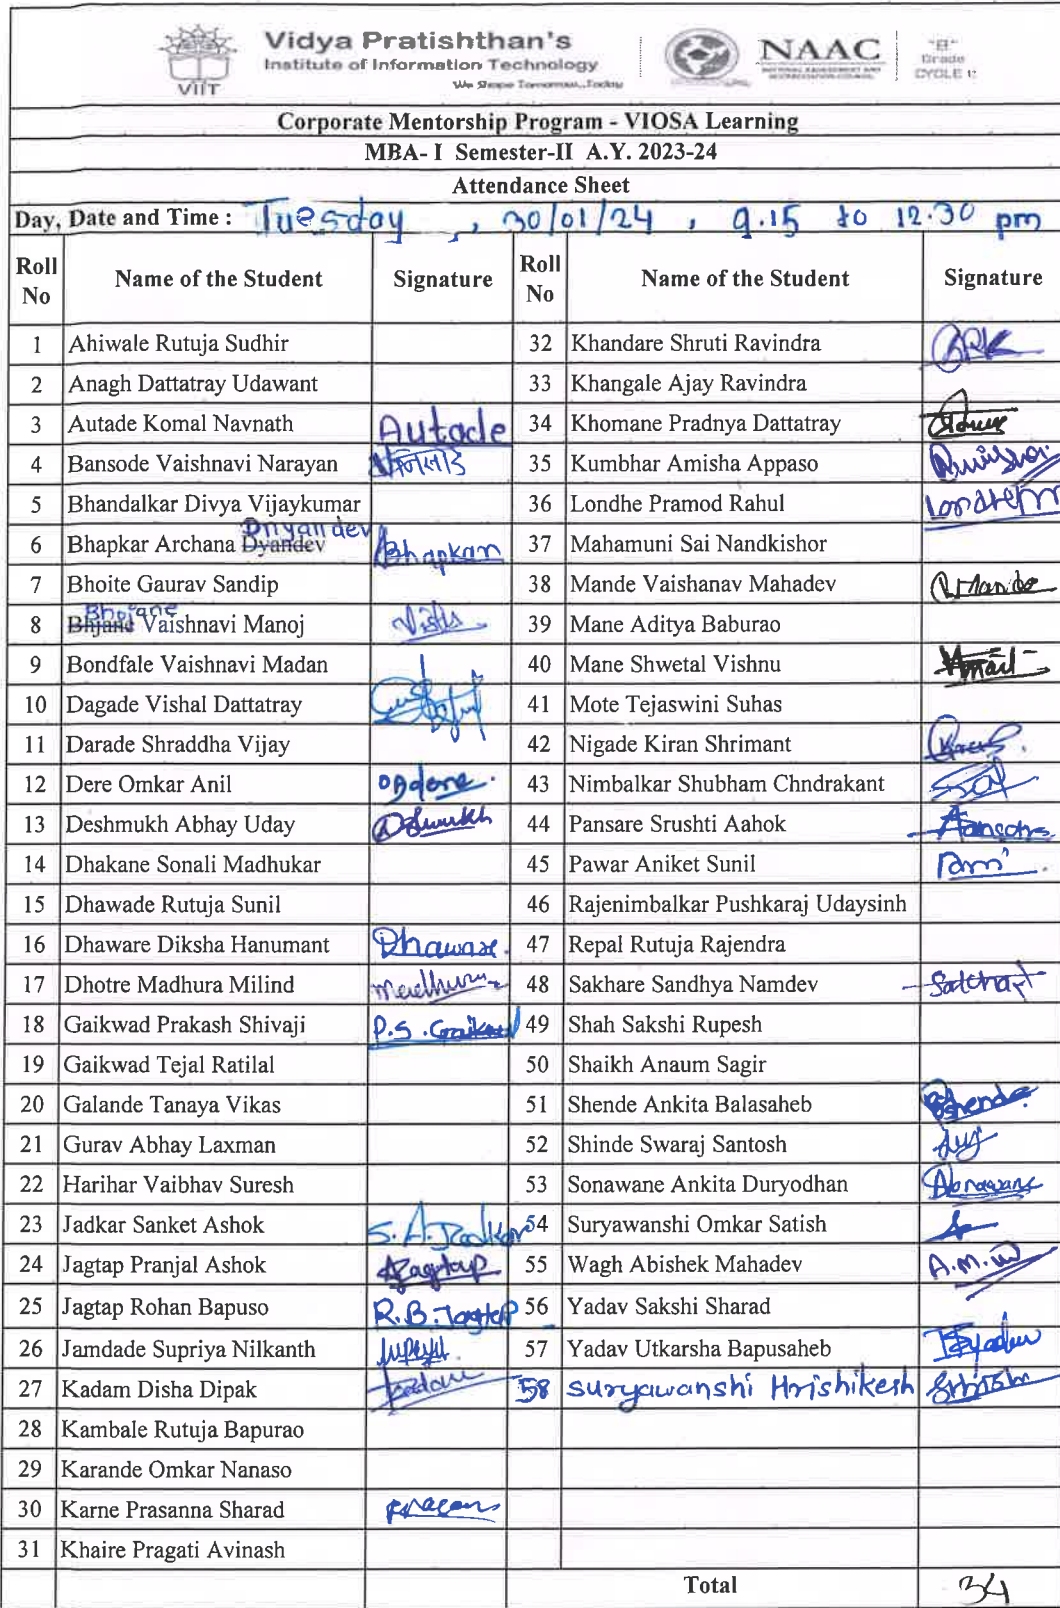 VIIT
Vidya Pratishthan's
Institute of Information Technology
We Shape Tomorrow...Today
NAAC
NATIONAL ASSESSMENT AND ACCREDITATION COUNCIL
"B" Grade CYCLE 1
Corporate Mentorship Program - VIOSA Learning
MBA- I Semester-II A.Y. 2023-24
Attendance Sheet
Day, Date and Time : Tuesday , 30/01/24 , 9.15 to 12.30 pm
Roll No Name of the Student Signature Roll No Name of the Student Signature
1 Ahiwale Rutuja Sudhir 32 Khandare Shruti Ravindra SRK
2 Anagh Dattatray Udawant 33 Khangale Ajay Ravindra
3 Autade Komal Navnath Autade 34 Khomane Pradnya Dattatray
4 Bansode Vaishnavi Narayan 35 Kumbhar Amisha Appaso
5 Bhandalkar Divya Vijaykumar 36 Londhe Pramod Rahul
6 Bhapkar Archana Dyandev Dnyandev Bhapkar 37 Mahamuni Sai Nandkishor
7 Bhoite Gaurav Sandip 38 Mande Vaishanav Mahadev
8 Bhjane Bhojane Vaishnavi Manoj 39 Mane Aditya Baburao
9 Bondfale Vaishnavi Madan 40 Mane Shwetal Vishnu
10 Dagade Vishal Dattatray 41 Mote Tejaswini Suhas
11 Darade Shraddha Vijay 42 Nigade Kiran Shrimant
12 Dere Omkar Anil 43 Nimbalkar Shubham Chndrakant
13 Deshmukh Abhay Uday 44 Pansare Srushti Aahok
14 Dhakane Sonali Madhukar 45 Pawar Aniket Sunil
15 Dhawade Rutuja Sunil 46 Rajenimbalkar Pushkaraj Udaysinh
16 Dhaware Diksha Hanumant Dhaware. 47 Repal Rutuja Rajendra
17 Dhotre Madhura Milind 48 Sakhare Sandhya Namdev
18 Gaikwad Prakash Shivaji P.S. Gaikwad 49 Shah Sakshi Rupesh
19 Gaikwad Tejal Ratilal 50 Shaikh Anaum Sagir
20 Galande Tanaya Vikas 51 Shende Ankita Balasaheb Shende
21 Gurav Abhay Laxman 52 Shinde Swaraj Santosh
22 Harihar Vaibhav Suresh 53 Sonawane Ankita Duryodhan
23 Jadkar Sanket Ashok S.A.Jadkar 54 Suryawanshi Omkar Satish
24 Jagtap Pranjal Ashok Jagtap 55 Wagh Abishek Mahadev A.M.W
25 Jagtap Rohan Bapuso R.B.Jagtap 56 Yadav Sakshi Sharad
26 Jamdade Supriya Nilkanth 57 Yadav Utkarsha Bapusaheb
27 Kadam Disha Dipak 58 Suryawanshi Hrishikesh
28 Kambale Rutuja Bapurao
29 Karande Omkar Nanaso
30 Karne Prasanna Sharad
31 Khaire Pragati Avinash
Total 34